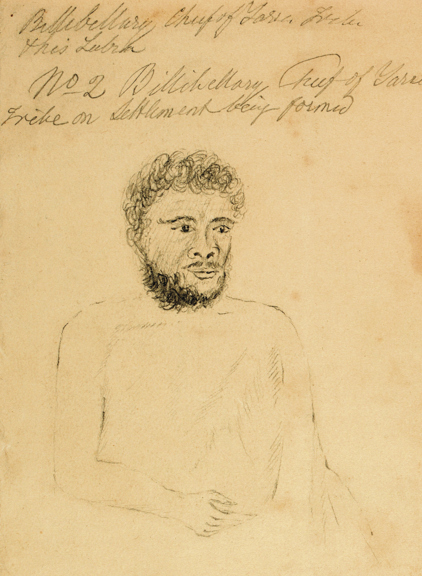 Billibellary Chief of Yarra Tribe
& his Lubra
No 2 Billibellary Chief of Yarra
Tribe on Settlement being formed